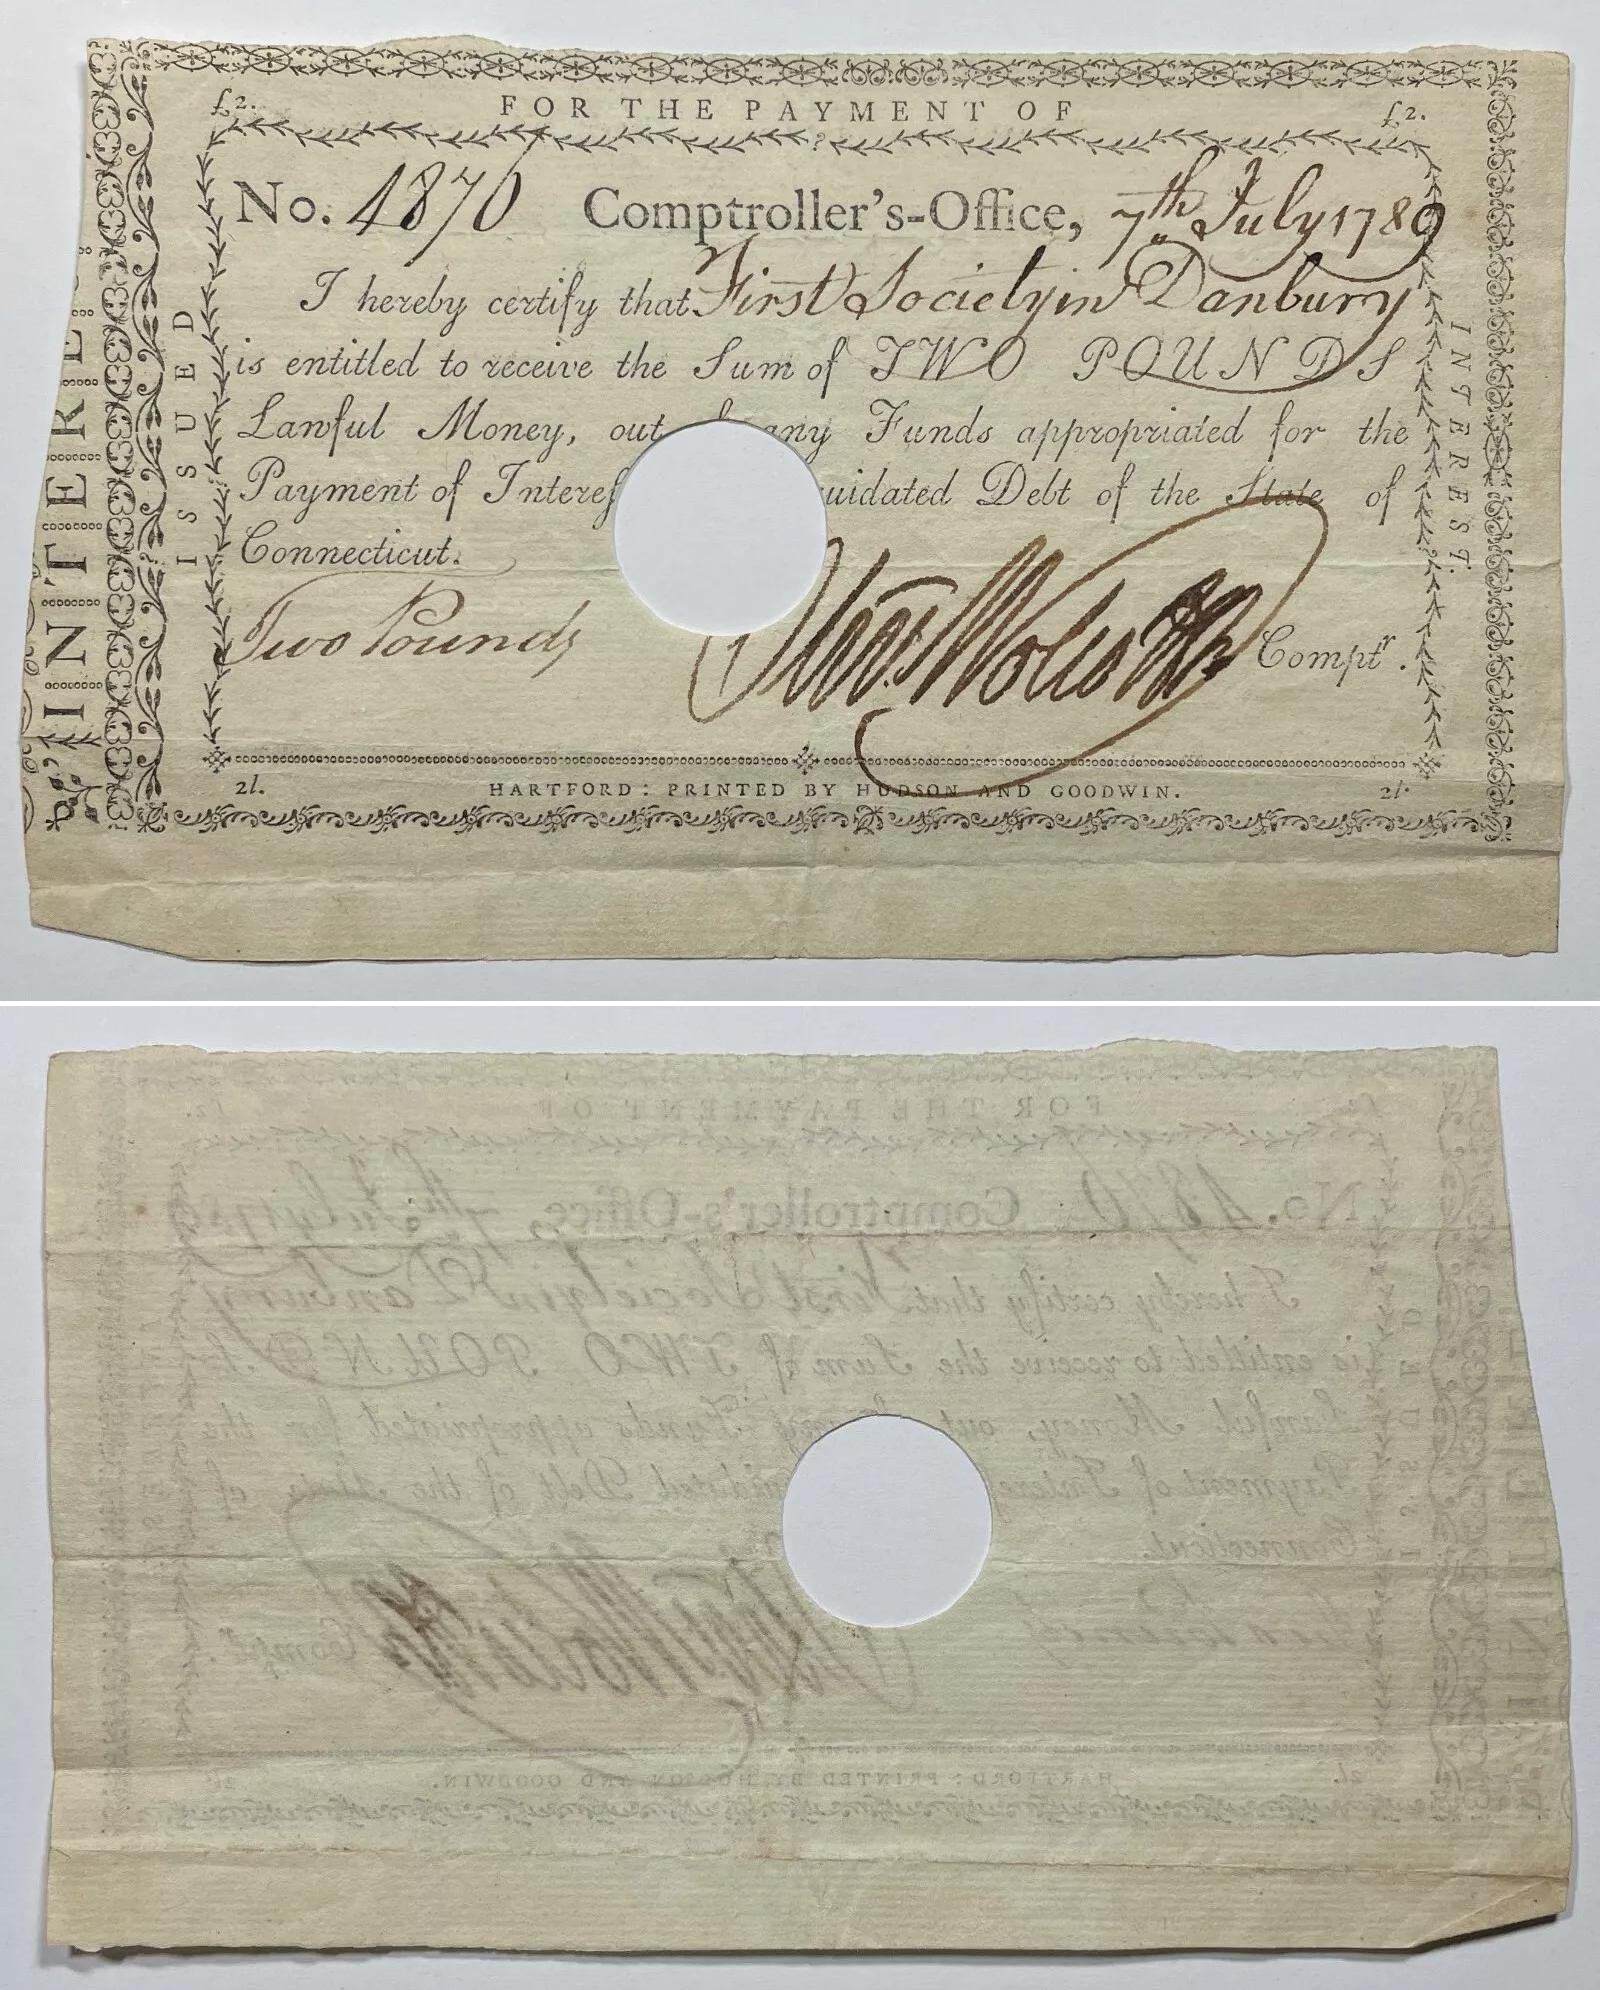 £2. FOR THE PAYMENT OF £2.
No. 4876 Comptroller's-Office, 7th July 1789
I hereby certify that First Society in Danbury
is entitled to receive the Sum of TWO POUNDS
Lawful Money, out any Funds appropriated for the
Payment of Interes uidated Debt of the State of
Connecticut.
Two Pounds
Comptr.
2l. HARTFORD: PRINTED BY HUDSON AND GOODWIN. 2l.
ISSUED
INTEREST.
INTERE